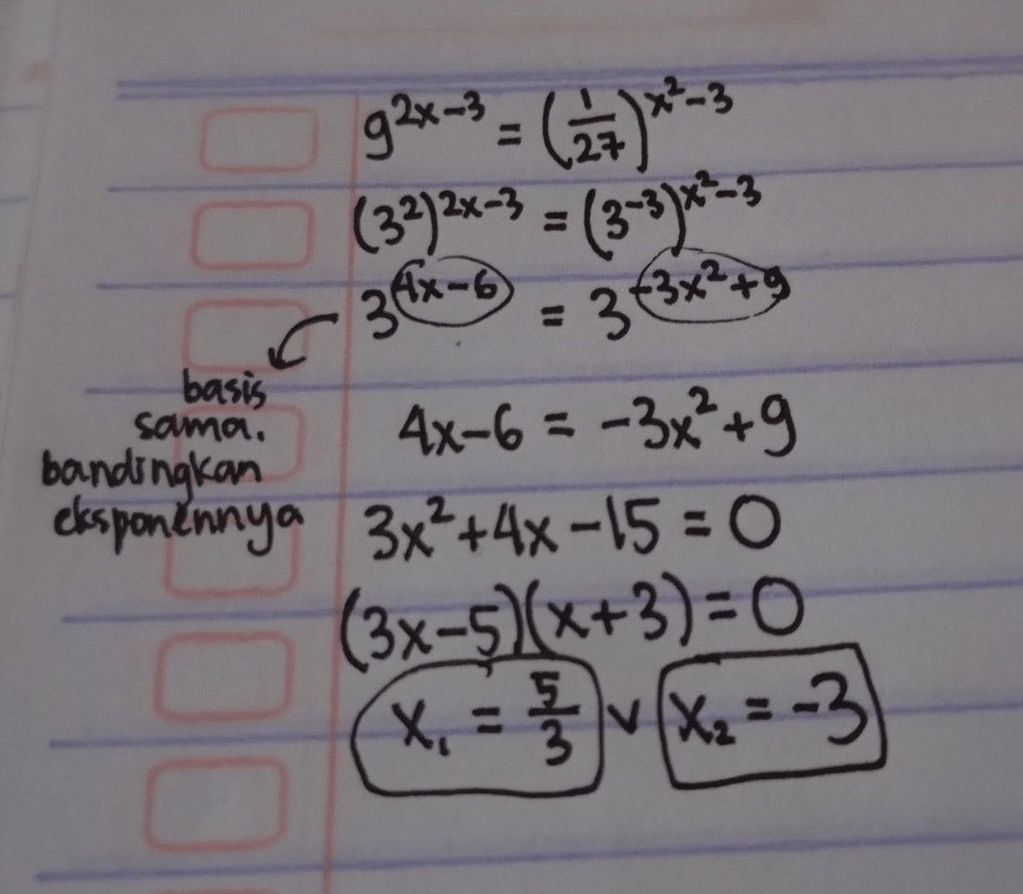 9^{2x-3} = (1/27)^{x²-3}
(3²)^{2x-3} = (3^{-3})^{x²-3}
3^{4x-6} = 3^{-3x²+9}
basis
sama.
bandingkan
eksponennya
4x-6 = -3x²+9
3x²+4x-15 = 0
(3x-5)(x+3) = 0
x₁ = 5/3 v x₂ = -3